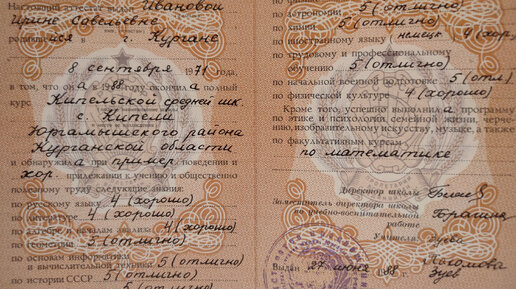 Настоящий аттестат выдан Ивановой
Ирине Савельевне
родившейся в г. Кургане
8 сентября 1971 года,
в том, что он а в 1988 окончил а полный
курс Кипельской средней шк.
с. Кипели
Юргамышского района
Курганской области
и обнаружил а при пример. поведении и
хор. прилежании к учению и общественно
полезному труду следующие знания:
по русскому языку 4 (хорошо)
по литературе 4 (хорошо)
по алгебре и началам анализа 4 (хорошо)
геометрии 5 (отлично)
по основам информатики
и вычислительной техники 5 (отлично)
по истории СССР 5 (отлично)
5 (отлично)
по астрономии 5 (отлично)
по химии 5 (отлично)
по иностранному языку (немецк. 4 (хор.)
по трудовому и профессиональному
обучению 5 (отлично)
по начальной военной подготовке 5 (отл.)
по физической культуре 4 (хорошо)
Кроме того, успешно выполнил а программу
по этике и психологии семейной жизни, черче-
нию, изобразительному искусству, музыке, а также
по факультативным курсам
по математике
Директор школы
Заместитель директора школы
по учебно-воспитательной
работе
Учителя:
Выдан 27 июня 88